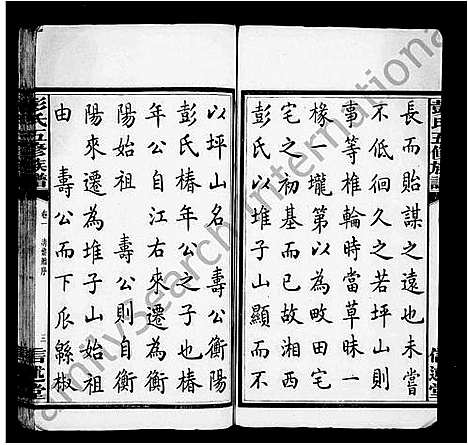 長而貽謀之遠也未嘗
不低徊久之若坪山則
事等椎輪時當草昧一
椽一壠第以為田宅
宅之初基而已故湘西
彭氏以堆子山顯而不
以坪山名 壽公衡陽
彭氏椿年公之子也椿
年公自江右來遷為衡
陽始祖 壽公則自衡
陽來遷為堆子山始祖
由 壽公而下瓜緜椒
彭氏五修族譜
卷一
序
三
信述堂
彭氏五修族譜
信述堂
amilysearch international